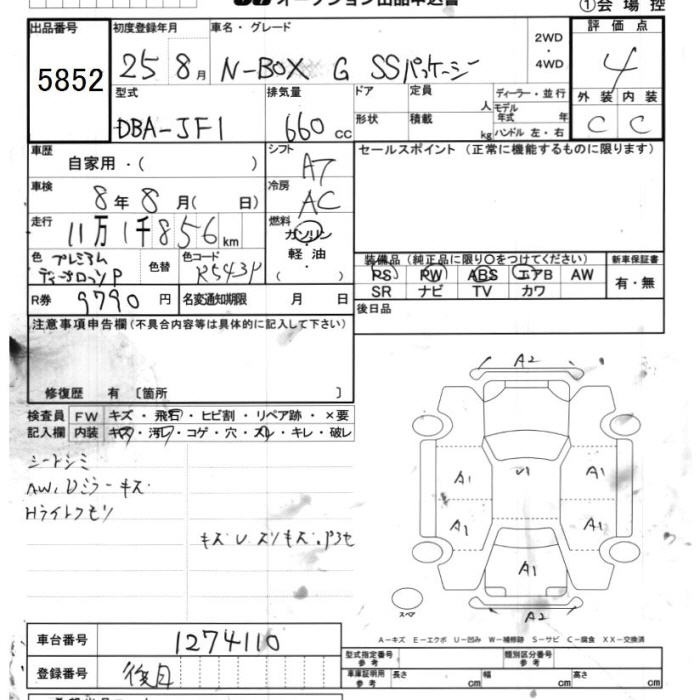 オークション出品申込書
①会場控
出品番号
5852
初度登録年月
25 8月
車名・グレード
N-BOX G SSパッケージ
2WD
・
4WD
評価点
4
型式
DBA-JF1
排気量
660 cc
ドア
定員
人
形状
積載
kg
ディーラー・並行
モデル年式 年
ハンドル 左・右
外装 内装
C C
車歴
自家用・( )
シフト
AT
セールスポイント (正常に機能するものに限ります)
車検
8年8月( 日)
冷房
AC
走行
11万1千856km
燃料
ガソリン
・
軽油
・
( )
色 プレミアム
ディープロッソP
色替
色コード
R543P
装備品 (純正品に限り○をつけてください)
新車保証書
PS PW ABS エアB AW
SR ナビ TV カワ
有・無
R券 9790円
名変通知期限 月 日
後日品
注意事項申告欄(不具合内容等は具体的に記入して下さい)
修復歴 有 〔箇所 〕
検査員記入欄
FW キズ・飛石・ヒビ割・リペア跡・×要
内装 キズ・汚レ・コゲ・穴・スレ・キレ・破レ
シートシミ
AW、Dミラーキズ
Hライトクモリ
A2
A1 U1 A1
A1 A1
A1
A2
スペア
A-キズ E-エクボ U-凹み W-補修跡 S-サビ C-腐食 XX-交換済
車台番号 1274110
登録番号 後日
型式指定番号 参考
類別区分番号 参考
車庫証明用 参考
長さ cm 幅 cm 高さ cm